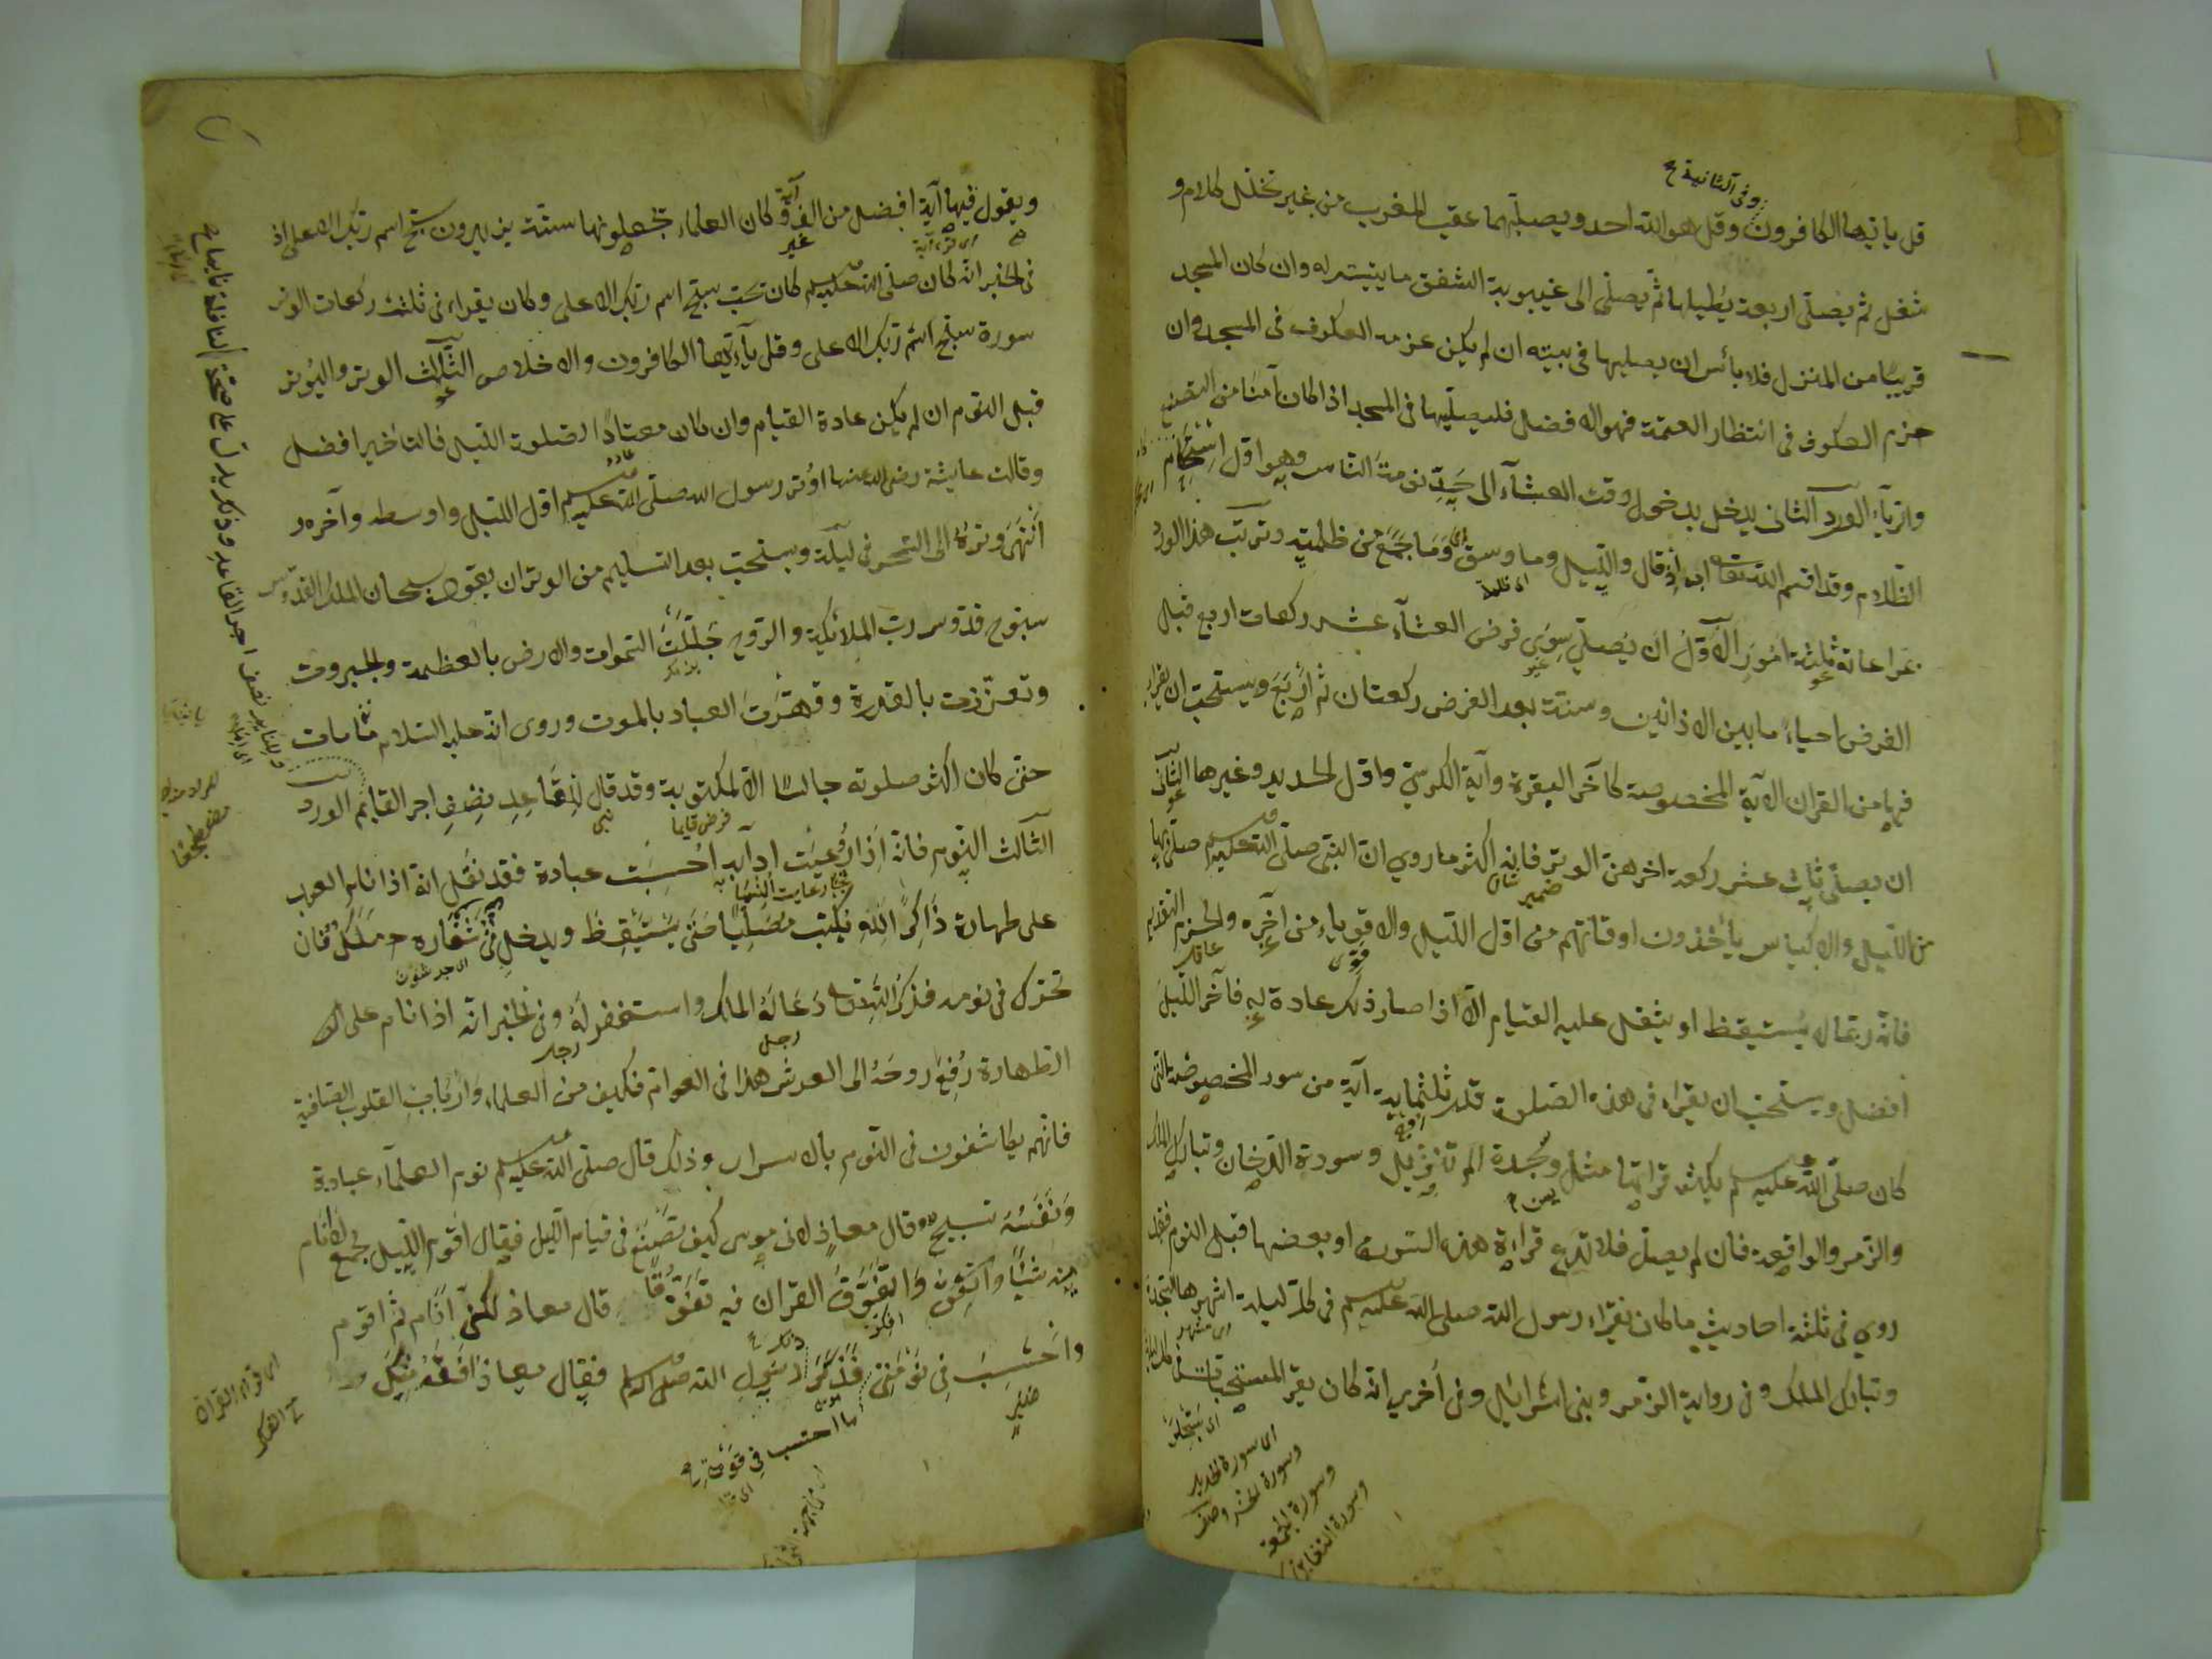 وفى الثانية
قل يا ايها الكافرون وقل هو الله احد ويصليهما عقيب المغرب من غير تخلل كلام و
شغل ثم يصلى اربعة يطيلها ثم يصلى الى غيبوبة الشفق ما يتيسر له وان كان المسجد
قريبا من المنزل فلا بأس ان يصليها فى بيته ان لم يكن عزمه العكوف فى المسجد وان
عزم العكوف فى انتظار العتمة فهو اله فضل فليصليها فى المسجد اذا كان آمنا من التصنع
الورد الثانى يدخل بدخول وقت العشآء الى حد نومة الناس وهو اول استحكام
الظلام وقد اقسم الله تعالى به اذ قال والليل وما وسق اى وما جمع من ظلمته وترتيب هذا الورد
اى ظلمة
بمراعاة ثلثة امور الاول ان يصلى سوى فرض العشآء عشر ركعات اربع قبل
الفرض احياء ما بين الاذانين وستة بعد الفرض ركعتان ثم اربع ويستحب ان يقراء
فيها من القران الآية المخصوصة كآخر البقرة وآية الكرسى واول الحديد وغيرها الثانى
ان يصلى ثلث عشر ركعة اخرهن الوتر فانه اكثر ما روى ان النبى صلى الله عليه وسلم صلى بها
ضمير شان
من الليل والاكياس يأخذون اوقاتهم من اول الليل والاقوياء من آخره والحزم التقديم
فانه ربما لا يستيقظ او يثقل عليه القيام الا اذا صار ذلك عادة له فآخر الليل
افضل ويستحب ان يقراء فى هذه الصلوة قدر ثلثمائة آية من سور المخصوصة التى
كان صلى الله عليه وسلم يكثر قراتها مثل وسجدة الم تنزيل وسورة الدخان وتبارك الملك
يس
والزمر والواقعة فان لم يصل فلا تدع قراءة هذه السورة او بعضها قبل النوم فقد
روى فى ثلثة احاديث ما كان يقراء رسول الله صلى الله عليه وسلم فى كل ليلة اشهرها السجدة
وتبارك الملك وفى رواية الزمر وبنى اسرائيل وفى اخرى انه كان يقر المسبحات فى كل ليلة
اى سورة الحديد
وسورة الحشر وصف
وسورة الجمعة
وسورة التغابن
ويقول فيها آية افضل من الف آية وكان العلماء يجعلونها ستة يزيدون سبح اسم ربك الاعلى اذ
فى الخبر انه كان صلى الله عليه وسلم كان يحب سبح اسم ربك الاعلى وكان يقراء فى ثلث ركعات الوتر
سورة سبح اسم ربك الاعلى وقل يا ايها الكافرون والاخلاص الثالث الوتر واليوتر
قبل النوم ان لم يكن عادة القيام وان كان معتادا لصلوة الليل فالتأخير افضل
وقالت عايشة رضى الله عنها اوتر رسول الله صلى الله عليه وسلم اول الليل واوسطه وآخره و
انتهى وتره الى السحر فى ليلة ويستحب بعد التسليم من الوتر ان يقول سبحان الملك القدوس
سبوح قدوس رب الملائكة والروح جللت السموات والارض بالعظمة والجبروت
وتعززت بالقدرة وقهرت العباد بالموت وروى انه عليه السلام ما مات
حتى كان اكثر صلوته جالسا الا المكتوبة وقد قال للقاعد نصف اجر القايم الورد
الثالث النوم فانه اذا روعيت ادآبه احسبت عبادة فقد نقل انه اذا نام العبد
على طهارة ذاكرا لله يكتب مصليا حتى يستيقظ ويدخل فى شعاره ملك فان
تحرك فى نومه فذكر الله تعالى دعا له الملك واستغفر له وفى الخبر انه اذا نام على
الطهارة رفع روحه الى العرش هذا فى العوام فكيف من العلماء وارباب القلوب الصافية
فانهم يكاشفون فى النوم بالاسرار وذلك قال صلى الله عليه وسلم نوم العلمآء عبادة
ونفسه تسبيح وقال معاذ لابى موسى كيف تصنع فى قيام الليل فقال اقوم الليل جميع لا انام
منه شيئا واتفوق القران فيه تفوقا قال معاذ لكنى انام ثم اقوم
واحتسب فى نومتى فذكر ذلك رسول الله صلى الله عليه وسلم فقال معاذ افقه منك
ما احتسب فى قومتى
النافلة ذكر يدل على صحة اجر القاعد نصف
اى قراء القران